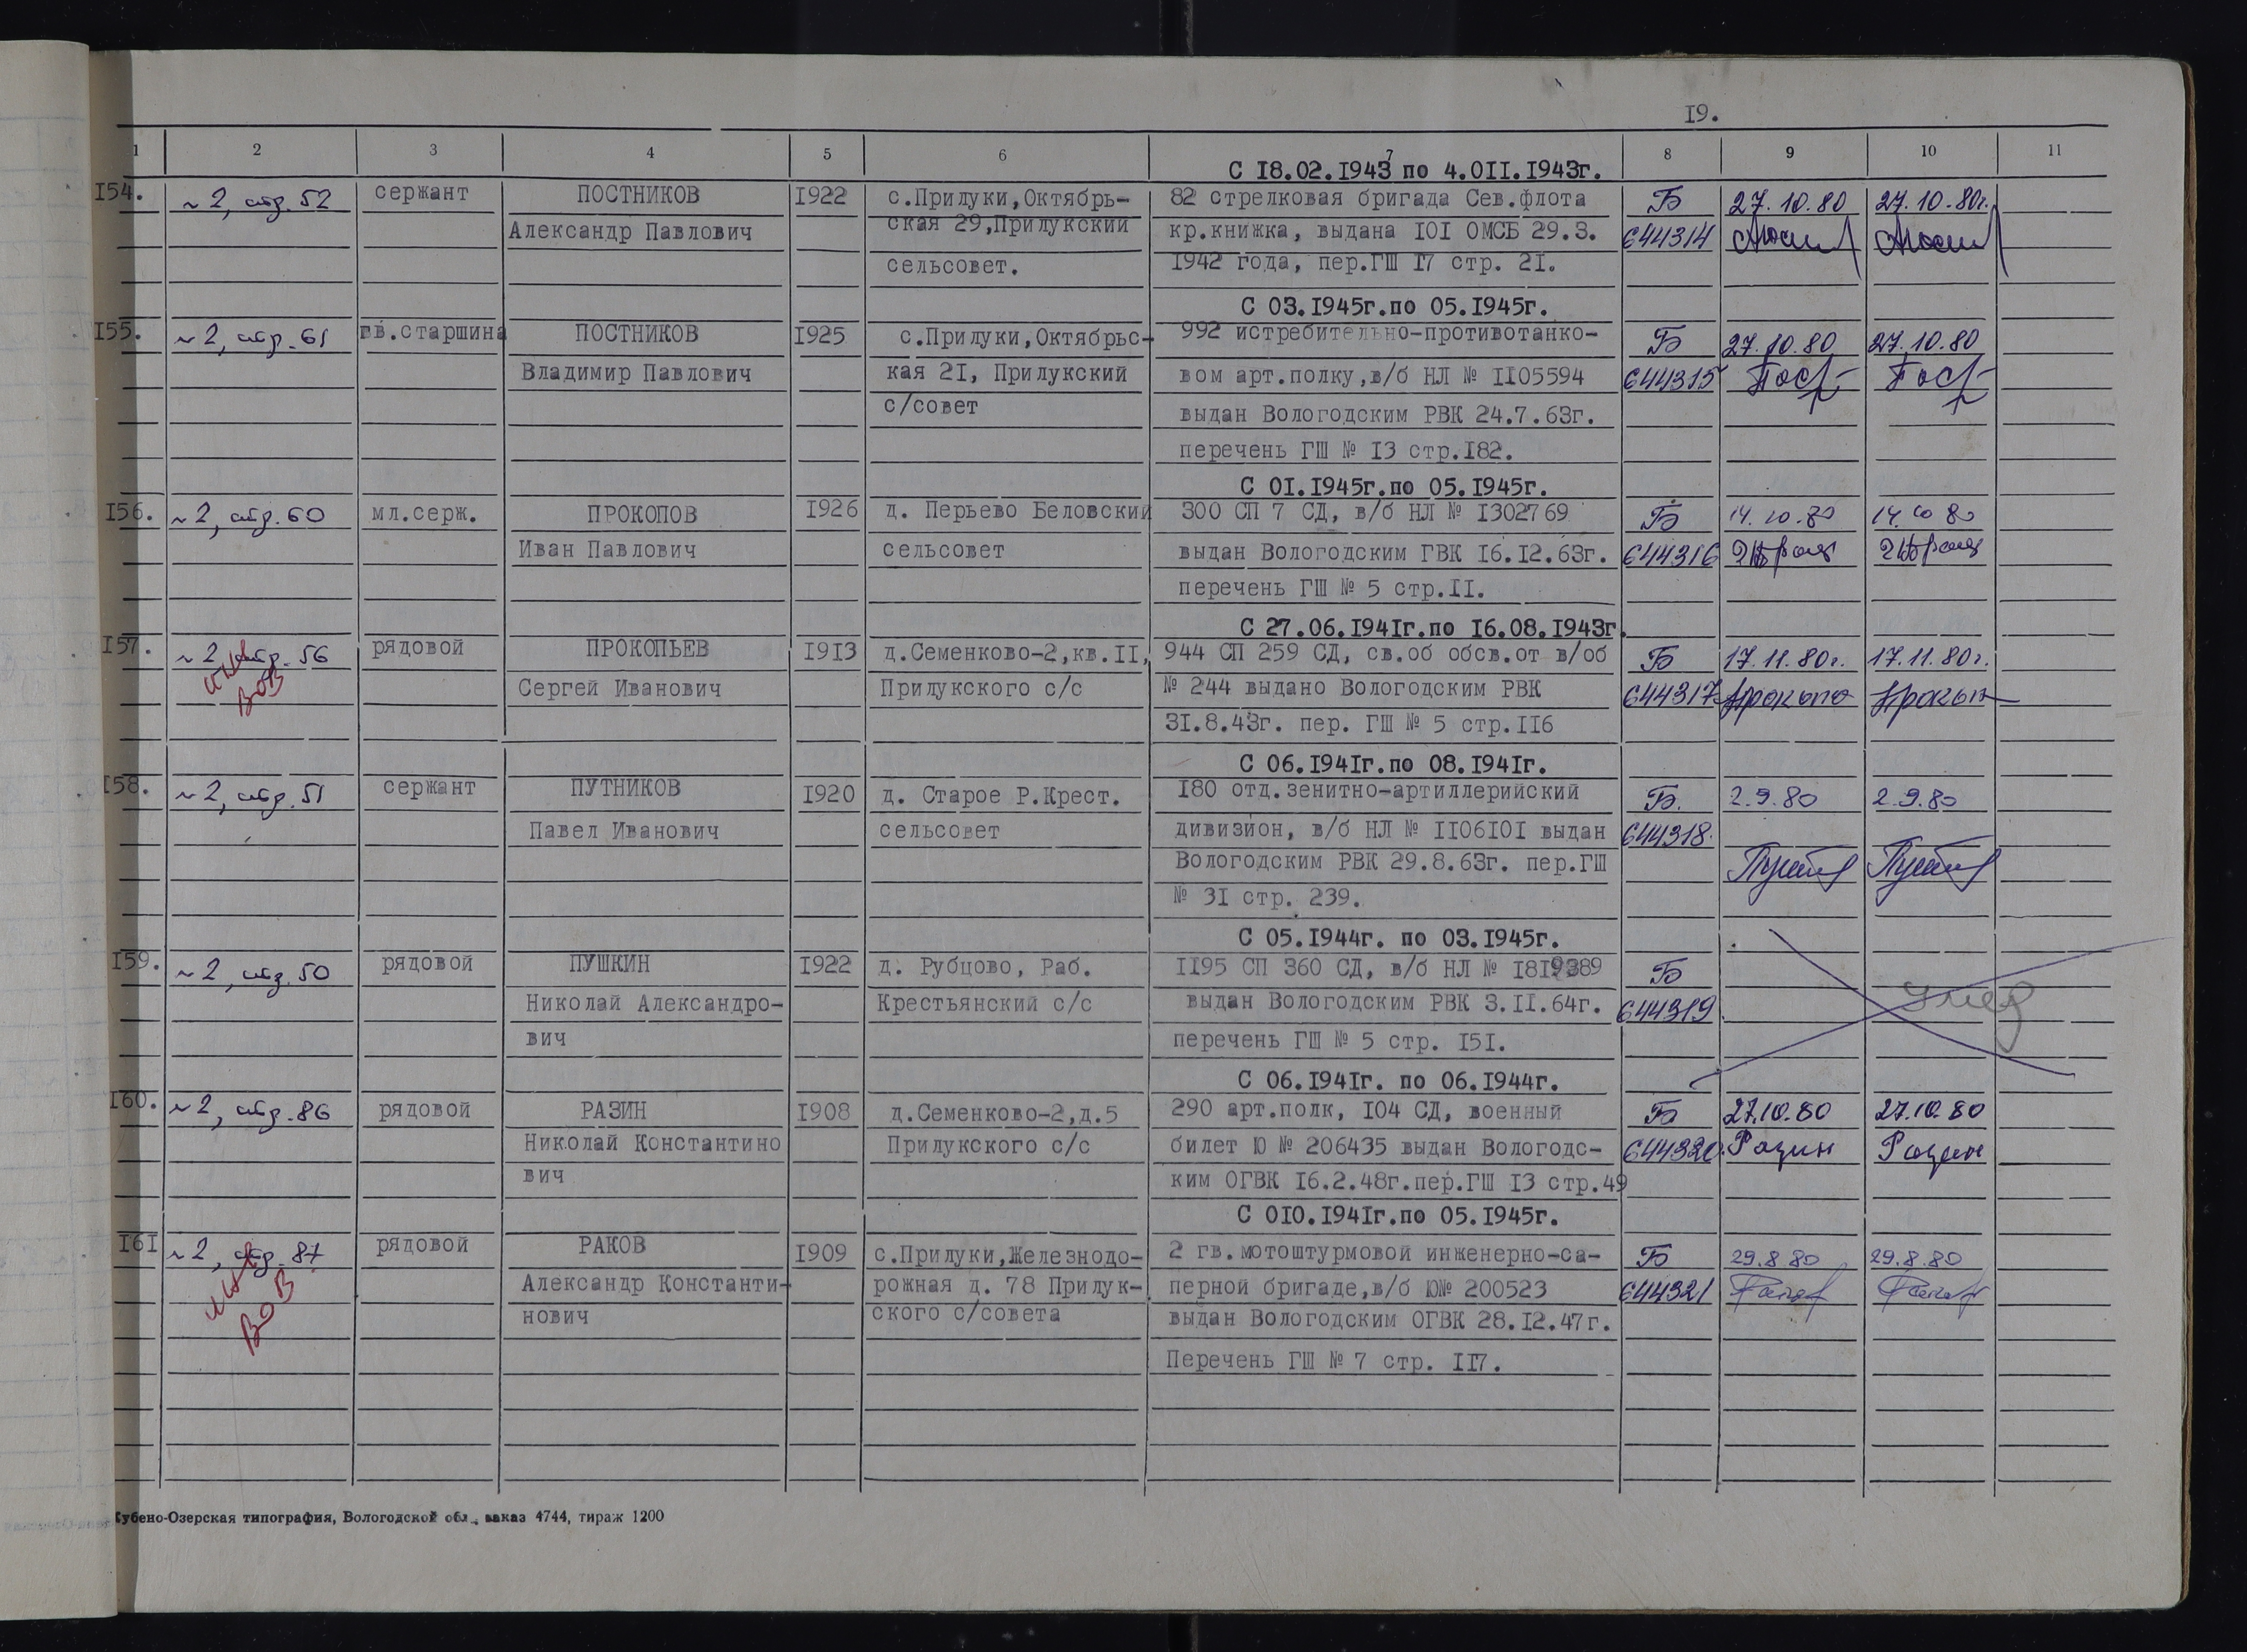 I9.
1 2 3 4 5 6 7 8 9 10 11
С I8.02.I943 по 4.0II.I943г.
I54. ~ 2, стр. 52 сержант ПОСТНИКОВ I922 с.Прилуки,Октябрь- 82 стрелковая бригада Сев.флота Б 27.10.80 27.10.80г.
Александр Павлович ская 29,Прилукский кр.книжка, выдана I0I ОМСБ 29.3. 644314
сельсовет. I942 года, пер.ГШ I7 стр. 2I.
С 03.I945г.по 05.I945г.
I55. ~ 2, стр. 61 гв.старшина ПОСТНИКОВ I925 с.Прилуки,Октябрьс- 992 истребительно-противотанко- Б 27.10.80 27.10.80
Владимир Павлович кая 2I, Прилукский вом арт.полку,в/б НЛ № II05594 644315
с/совет выдан Вологодским РВК 24.7.63г.
перечень ГШ № I3 стр.I82.
С 0I.I945г.по 05.I945г.
I56. ~ 2, стр. 60 мл.серж. ПРОКОПОВ I926 д. Перьево Беловский 300 СП 7 СД, в/б НЛ № I302769 Б 14.10.80 14.10 80
Иван Павлович сельсовет выдан Вологодским ГВК I6.I2.63г. 644316
перечень ГШ № 5 стр.II.
С 27.06.I94Iг.по I6.08.I943г.
I57. ~ 2 стр. 56 рядовой ПРОКОПЬЕВ I9I3 д.Семенково-2,кв.II, 944 СП 259 СД, св.об обсв.от в/об Б 17.11.80г. 17.11.80г.
инв ВОВ Сергей Иванович Прилукского с/с № 244 выдано Вологодским РВК 644317
3I.8.43г. пер. ГШ № 5 стр.II6
С 06.I94Iг.по 08.I94Iг.
I58. ~ 2, стр. 51 сержант ПУТНИКОВ I920 д. Старое Р.Крест. I80 отд.зенитно-артиллерийский Б. 2.9.80 2.9.80
Павел Иванович сельсовет дивизион, в/б НЛ № II06I0I выдан 644318.
Вологодским РВК 29.8.63г. пер.ГШ
№ 3I стр. 239.
С 05.I944г. по 03.I945г.
I59. ~ 2, стр. 50 рядовой ПУШКИН I922 д. Рубцово, Раб. II95 СП 360 СД, в/б НЛ № I8I9389 Б
Николай Александро- Крестьянский с/с выдан Вологодским РВК 3.II.64г. 644319. умер
вич перечень ГШ № 5 стр. I5I.
С 06.I94Iг. по 06.I944г.
I60. ~ 2, стр. 86 рядовой РАЗИН I908 д.Семенково-2,д.5 290 арт.полк, I04 СД, военный Б 27.10.80 27.10.80
Николай Константино Прилукского с/с билет Ю № 206435 выдан Вологодс- 644320. Разин Разин
вич ким ОГВК I6.2.48г.пер.ГШ I3 стр.49
С 0I0.I94Iг.по 05.I945г.
I6I ~ 2, стр. 87 рядовой РАКОВ I909 с.Прилуки,Железнодо- 2 гв.мотоштурмовой инженерно-са- Б 29.8.80 29.8.80
инв ВОВ Александр Константи- рожная д. 78 Прилук- перной бригаде,в/б Ю№ 200523 644321
нович ского с/совета выдан Вологодским ОГВК 28.I2.47г.
Перечень ГШ № 7 стр. II7.
Кубено-Озерская типография, Вологодской обл., заказ 4744, тираж 1200